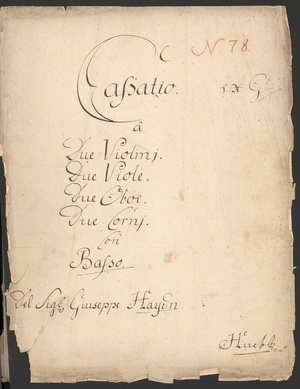 C N. 78.
Cassatio. ex G
à
Due Violini.
Due Viole.
Due Oboe.
Due Corni.
Con
Basso.
Del Sigl: Giuseppe Haydn